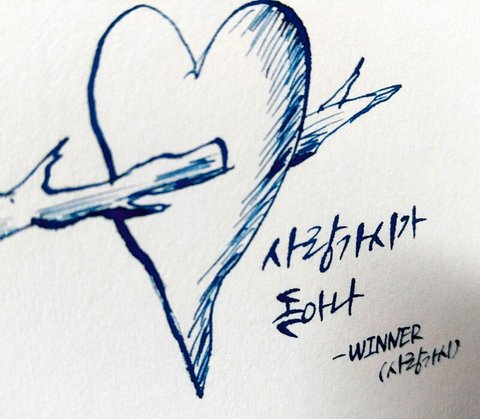 사랑가시가
돋아나
-WINNER
(사랑가시)